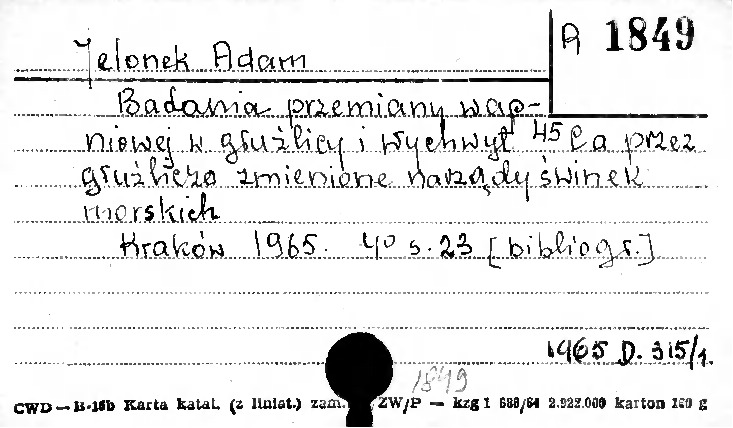 Jelonek Adam
A 1849
Badania przemiany wap-
niowej w gruźlicy i wychwyt 45Ca przez
gruźliczo zmienione narządy świnek
morskich
Kraków 1965. 4° s. 23 [bibliogr.]
1965 D. 315/1.
1849
CWD — B-16b Karta katal. (z liniat.) zam. ZW/P — kzg 1 688/64 2.922.000 karton 180 g